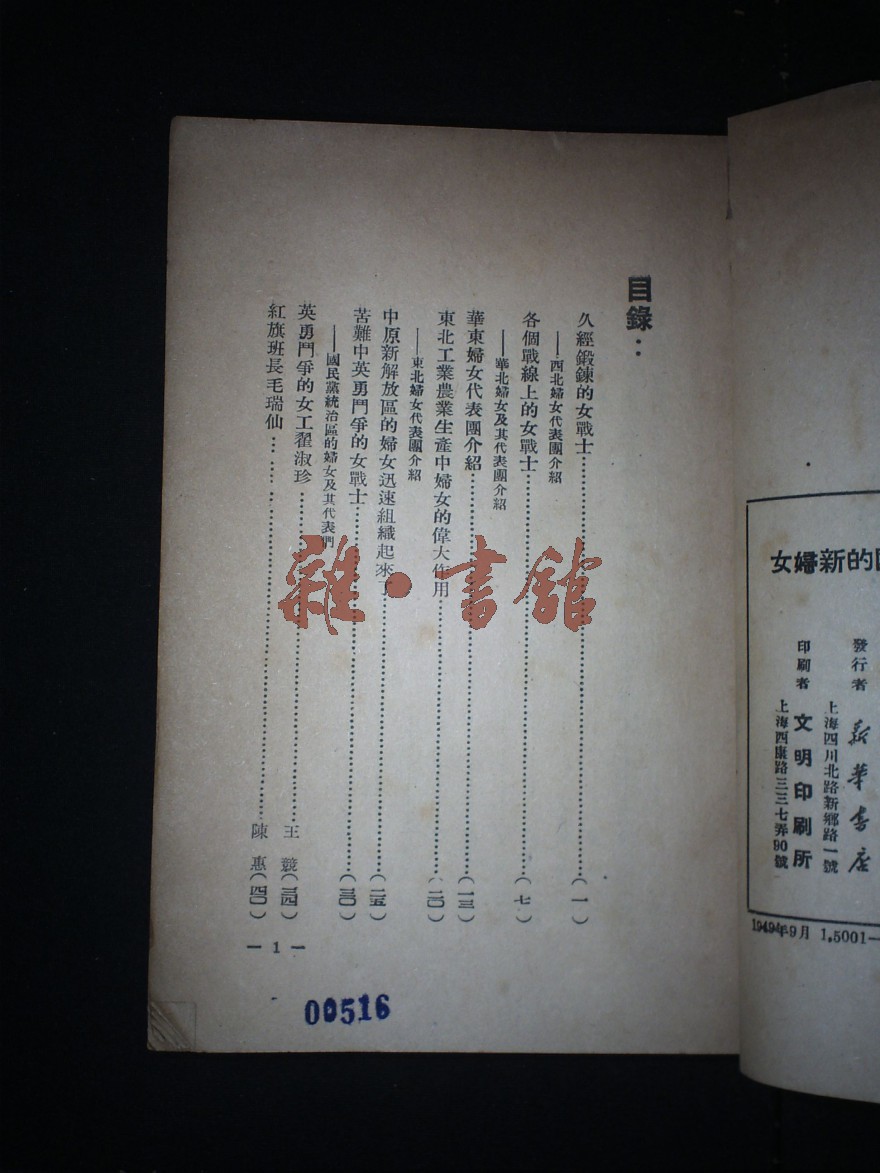 目錄：
久經鍛鍊的女戰士……（一）
——西北婦女代表團介紹
各個戰線上的女戰士……（七）
——華北婦女及其代表團介紹
華東婦女代表團介紹……（一三）
東北工業農業生產中婦女的偉大作用……（二〇）
——東北婦女代表團介紹
中原新解放區的婦女迅速組織起來了……（二五）
苦難中英勇鬥爭的女戰士……（三〇）
——國民黨統治區的婦女及其代表們
英勇鬥爭的女工翟淑珍……王 競（三四）
紅旗班長毛瑞仙……陳 惠（四〇）
— 1 —
00516
雜·書館
的新婦女
發行者 新華書店
上海四川北路新鄉路一號
印刷者 文明印刷所
上海西康路三三七弄90號
1949年9月 1,5001—